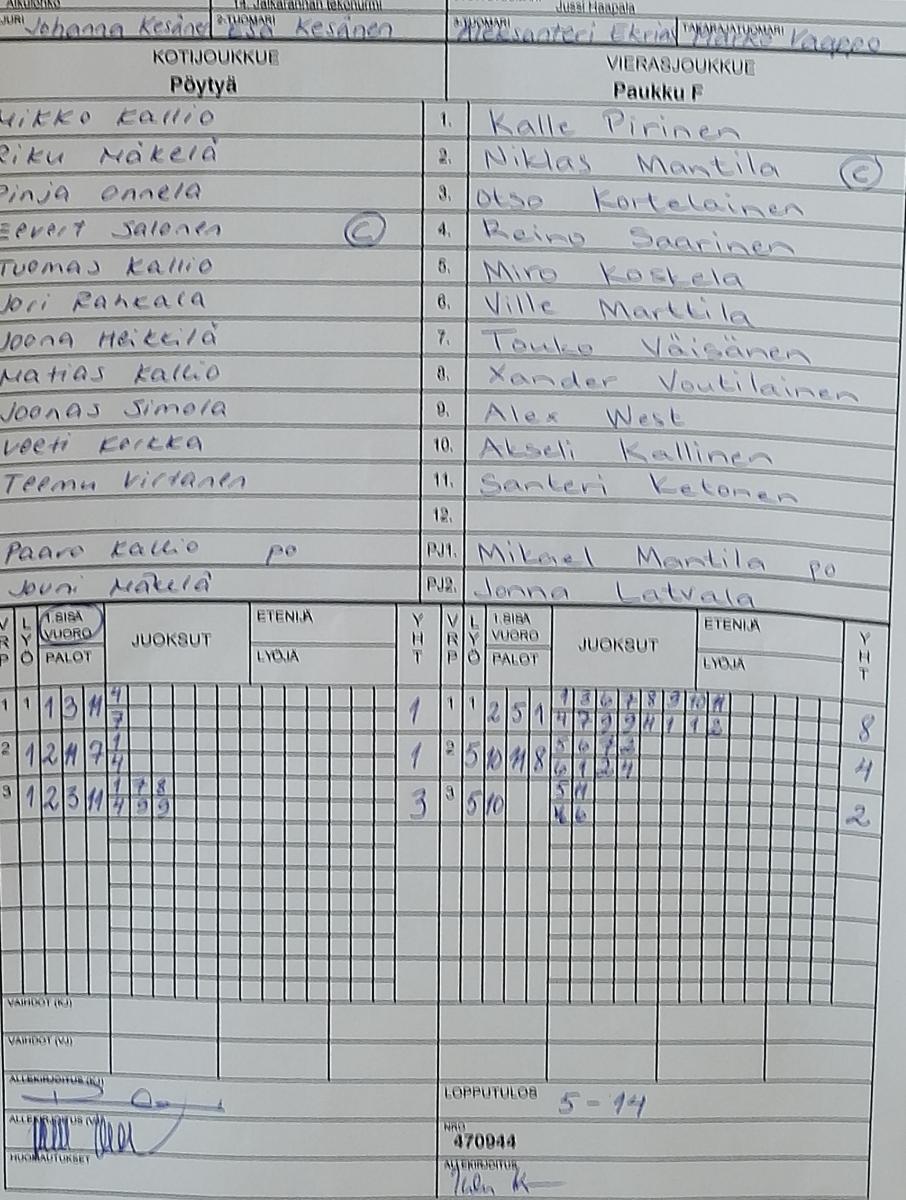 Aikulohko 14. Jalkarannan tekonurmi Jussi Haapala
Johanna Kesänen 2-TUOMARI Esa Kesänen 3-TUOMARI Aleksanteri TAKARAJATUOMARI Marko
KOTIJOUKKUE VIERASJOUKKUE
Pöytyä Paukku F
Mikko Kallio 1. Kalle Pirinen
Riku Mäkelä 2. Niklas Mantila C
Pinja Onnela 3. Otso Kortelainen
Eevert Salonen C 4. Reino Saarinen
Tuomas Kallio 5. Miro Koskela
Jori Rahkala 6. Ville Marttila
Joona Heikkilä 7. Touko Väisänen
Matias Kallio 8. Xander Voutilainen
Joonas Simola 9. Alex West
Veeti Kerkka 10. Akseli Kallinen
Teemu Virtanen 11. Santeri Ketonen
12.
Paavo Kallio po PJ1. Mikael Mantila po
Jouni Mäkelä PJ2. Jonna Latvala
VRP LYÖ 1.SISÄ VUORO PALOT JUOKSUT ETENIJÄ LYÖJÄ YHT VRP LYÖ 1.SISÄ VUORO PALOT JUOKSUT ETENIJÄ LYÖJÄ YHT
1 1 1 3 11 4 1 1 1 2 5 1 1 3 6 7 8 9 10 11 8
7 4 7 9 9 4 1 1 3
2 1 2 11 7 1 1 2 5 10 11 8 5 6 1 3 4
4 6 1 2 4
3 1 2 3 11 1 7 8 3 3 5 10 5 11 2
4 9 9 6
VAIHDOT (KJ)
VAIHDOT (VJ)
ALLEKIRJOITUS (KJ) LOPPUTULOS 5 - 14
ALLEKIRJOITUS (VJ) NRO
470944
HUOMAUTUKSET ALLEKIRJOITUS